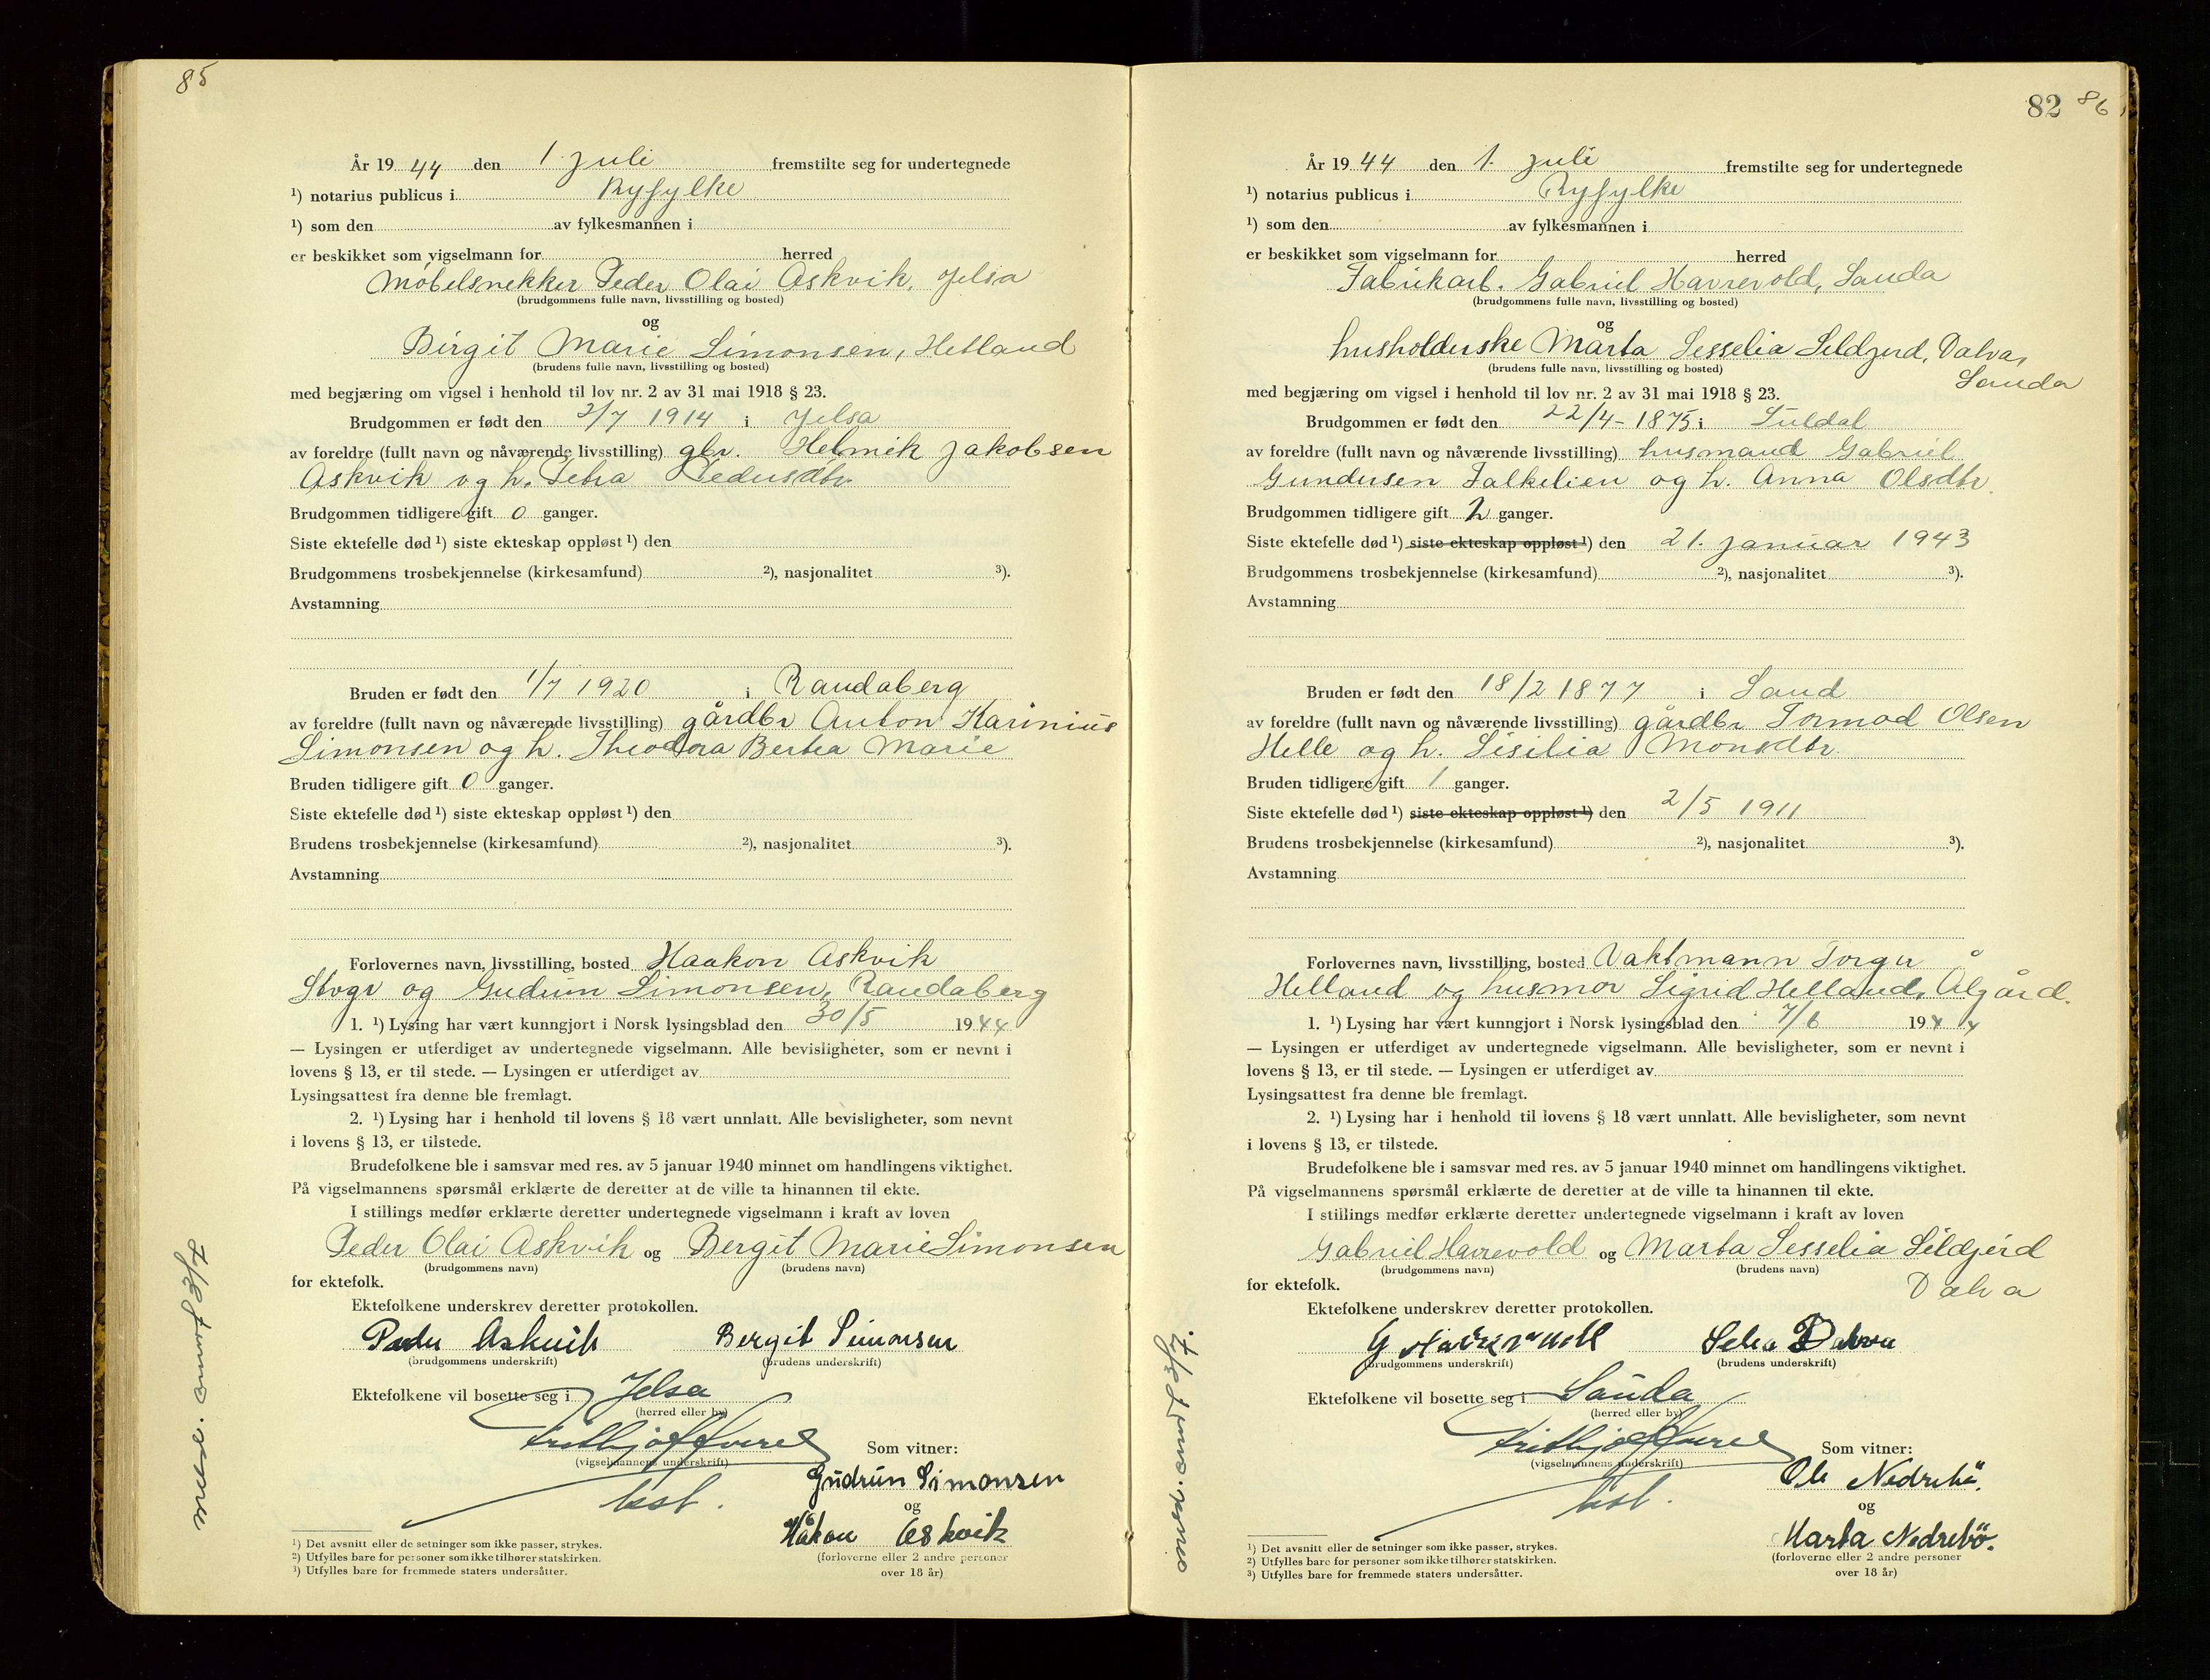 85
År 1944 den 1. juli fremstilte seg for undertegnede
¹) notarius publicus i Ryfylke
¹) som den av fylkesmannen i
er beskikket som vigselmann for herred
Møbelsnekker Peder Olai Askvik, Jelsa
(brudgommens fulle navn, livsstilling og bosted)
og
Birgit Marie Simonsen, Hetland
(brudens fulle navn, livsstilling og bosted)
med begjæring om vigsel i henhold til lov nr. 2 av 31 mai 1918 § 23.
Brudgommen er født den 2/7 1914 i Jelsa
av foreldre (fullt navn og nåværende livsstilling) gbr. Helmik Jakobsen
Askvik og h. Petra Pedersdtr.
Brudgommen tidligere gift 0 ganger.
Siste ektefelle død ¹) siste ekteskap oppløst ¹) den
Brudgommens trosbekjennelse (kirkesamfund) ²), nasjonalitet ³).
Avstamning
Bruden er født den 1/7 1920 i Randaberg
av foreldre (fullt navn og nåværende livsstilling) gårdbr Anton Karinius
Simonsen og h. Theodora Bertea Marie
Bruden tidligere gift 0 ganger.
Siste ektefelle død ¹) siste ekteskap oppløst ¹) den
Brudens trosbekjennelse (kirkesamfund) ²), nasjonalitet ³).
Avstamning
Forlovernes navn, livsstilling, bosted Haakon Askvik
Stvgr og Gudrun Simonsen, Randaberg
1. ¹) Lysing har vært kunngjort i Norsk lysingsblad den 30/5 1944
— Lysingen er utferdiget av undertegnede vigselmann. Alle bevisligheter, som er nevnt i
lovens § 13, er til stede. — Lysingen er utferdiget av
Lysingsattest fra denne ble fremlagt.
2. ¹) Lysing har i henhold til lovens § 18 vært unnlatt. Alle bevisligheter, som nevnt
i lovens § 13, er tilstede.
Brudefolkene ble i samsvar med res. av 5 januar 1940 minnet om handlingens viktighet.
På vigselmannens spørsmål erklærte de deretter at de ville ta hinannen til ekte.
I stillings medfør erklærte deretter undertegnede vigselmann i kraft av loven
Peder Olai Askvik og Bergit Marie Simonsen
(brudgommens navn) (brudens navn)
for ektefolk.
Ektefolkene underskrev deretter protokollen.
Peder Askvik Bergit Simonsen
(brudgommens underskrift) (brudens underskrift)
Ektefolkene vil bosette seg i Jelsa
(herred eller by)
(vigselmannens underskrift)
Som vitner:
Gudrun Simonsen
og
Håkon Askvik
(forloverne eller 2 andre personer
over 18 år)
¹) Det avsnitt eller de setninger som ikke passer, strykes.
²) Utfylles bare for personer som ikke tilhører statskirken.
³) Utfylles bare for fremmede staters undersåtter.
82 86
År 1944 den 1. juli fremstilte seg for undertegnede
¹) notarius publicus i Ryfylke
¹) som den av fylkesmannen i
er beskikket som vigselmann for herred
Fabrikarb. Gabriel Havrevold, Sauda
(brudgommens fulle navn, livsstilling og bosted)
og
husholderske Marta Sesselia Seldjerd, Dalva,
Sauda
(brudens fulle navn, livsstilling og bosted)
med begjæring om vigsel i henhold til lov nr. 2 av 31 mai 1918 § 23.
Brudgommen er født den 22/4-1875 i Suldal
av foreldre (fullt navn og nåværende livsstilling) husmand Gabriel
Gundersen Falkelien og h. Anna Olsdtr.
Brudgommen tidligere gift 2 ganger.
Siste ektefelle død ¹) siste ekteskap oppløst ¹) den 21. januar 1943
Brudgommens trosbekjennelse (kirkesamfund) ²), nasjonalitet ³).
Avstamning
Bruden er født den 18/2 1877 i Sand
av foreldre (fullt navn og nåværende livsstilling) gårdbr Tormod Olsen
Helle og h. Sisilia Monsdtr.
Bruden tidligere gift 1 ganger.
Siste ektefelle død ¹) siste ekteskap oppløst ¹) den 2/5 1911
Brudens trosbekjennelse (kirkesamfund) ²), nasjonalitet ³).
Avstamning
Forlovernes navn, livsstilling, bosted Vaktmann Torger
Helland og husmor Sigrid Helland, Ålgård.
1. ¹) Lysing har vært kunngjort i Norsk lysingsblad den 7/6 1944
— Lysingen er utferdiget av undertegnede vigselmann. Alle bevisligheter, som er nevnt i
lovens § 13, er til stede. — Lysingen er utferdiget av
Lysingsattest fra denne ble fremlagt.
2. ¹) Lysing har i henhold til lovens § 18 vært unnlatt. Alle bevisligheter, som nevnt
i lovens § 13, er tilstede.
Brudefolkene ble i samsvar med res. av 5 januar 1940 minnet om handlingens viktighet.
På vigselmannens spørsmål erklærte de deretter at de ville ta hinannen til ekte.
I stillings medfør erklærte deretter undertegnede vigselmann i kraft av loven
Gabriel Havrevold og Marta Sesselia Seldjerd
Dalva
(brudgommens navn) (brudens navn)
for ektefolk.
Ektefolkene underskrev deretter protokollen.
G Havrevold
(brudgommens underskrift) (brudens underskrift)
Ektefolkene vil bosette seg i Sauda
(herred eller by)
(vigselmannens underskrift)
Som vitner:
Ole Nedrebö.
og
Marta Nedrebö.
(forloverne eller 2 andre personer
over 18 år)
¹) Det avsnitt eller de setninger som ikke passer, strykes.
²) Utfylles bare for personer som ikke tilhører statskirken.
³) Utfylles bare for fremmede staters undersåtter.